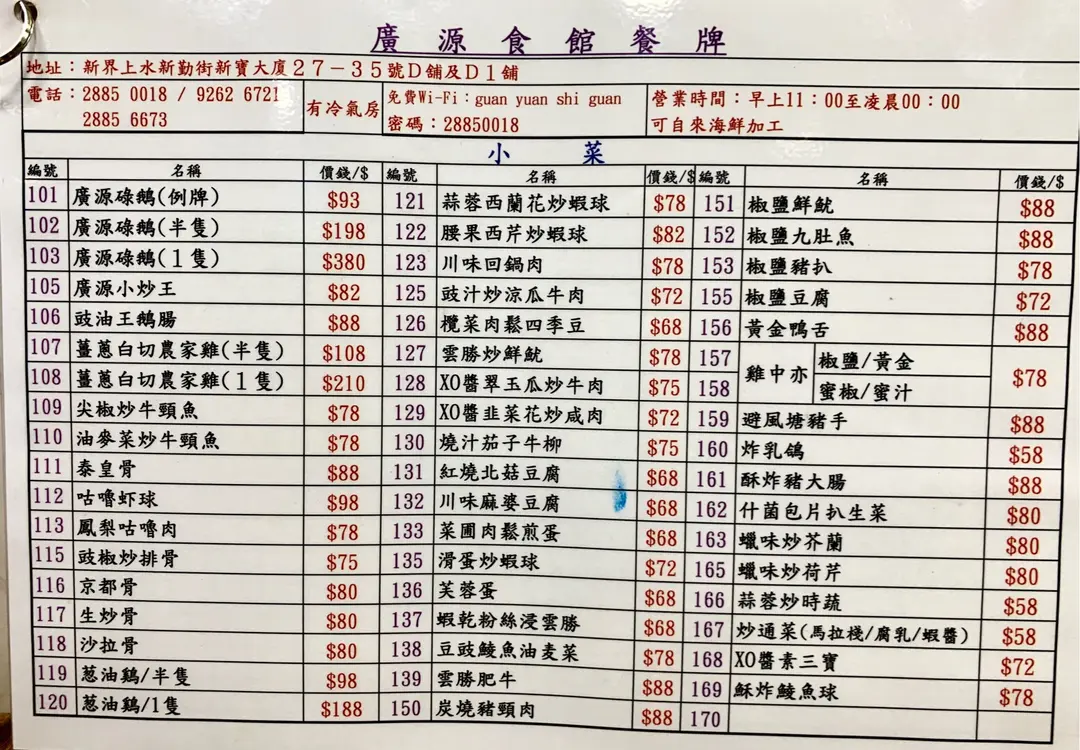 廣源食館餐牌
地址：新界上水新勤街新寶大廈２７－３５號Ｄ舖及Ｄ１舖
電話：2885 0018 / 9262 6721
2885 6673
有冷氣房
免費Wi-Fi：guan yuan shi guan
密碼：28850018
營業時間：早上11：00至凌晨00：00
可自來海鮮加工
小菜
編號 名稱 價錢/$ 編號 名稱 價錢/$ 編號 名稱 價錢/$
101 廣源碌鵝(例牌) $93 121 蒜蓉西蘭花炒蝦球 $78 151 椒鹽鮮魷 $88
102 廣源碌鵝(半隻) $198 122 腰果西芹炒蝦球 $82 152 椒鹽九肚魚 $88
103 廣源碌鵝(１隻) $380 123 川味回鍋肉 $78 153 椒鹽豬扒 $78
105 廣源小炒王 $82 125 豉汁炒涼瓜牛肉 $72 155 椒鹽豆腐 $72
106 豉油王鵝腸 $88 126 欖菜肉鬆四季豆 $68 156 黃金鴨舌 $88
107 薑蔥白切農家雞(半隻) $108 127 雲勝炒鮮魷 $78 157 雞中亦 椒鹽/黃金 $78
108 薑蔥白切農家雞(１隻) $210 128 XO醬翠玉瓜炒牛肉 $75 158 蜜椒/蜜汁
109 尖椒炒牛頸魚 $78 129 XO醬韭菜花炒咸肉 $72 159 避風塘豬手 $88
110 油麥菜炒牛頸魚 $78 130 燒汁茄子牛柳 $75 160 炸乳鴿 $58
111 泰皇骨 $88 131 紅燒北菇豆腐 $68 161 酥炸豬大腸 $88
112 咕嚕虾球 $98 132 川味麻婆豆腐 $68 162 什菌包片扒生菜 $80
113 鳳梨咕嚕肉 $78 133 菜圃肉鬆煎蛋 $68 163 蠟味炒芥蘭 $80
115 豉椒炒排骨 $75 135 滑蛋炒蝦球 $72 165 蠟味炒荷芹 $80
116 京都骨 $80 136 芙蓉蛋 $68 166 蒜蓉炒時蔬 $58
117 生炒骨 $80 137 蝦乾粉絲浸雲勝 $68 167 炒通菜(馬拉棧/腐乳/蝦醬) $58
118 沙拉骨 $80 138 豆豉鯪魚油麦菜 $78 168 XO醬素三寶 $72
119 葱油鷄/半隻 $98 139 雲勝肥牛 $88 169 酥炸鯪魚球 $78
120 葱油鷄/1隻 $188 150 炭燒豬頸肉 $88 170